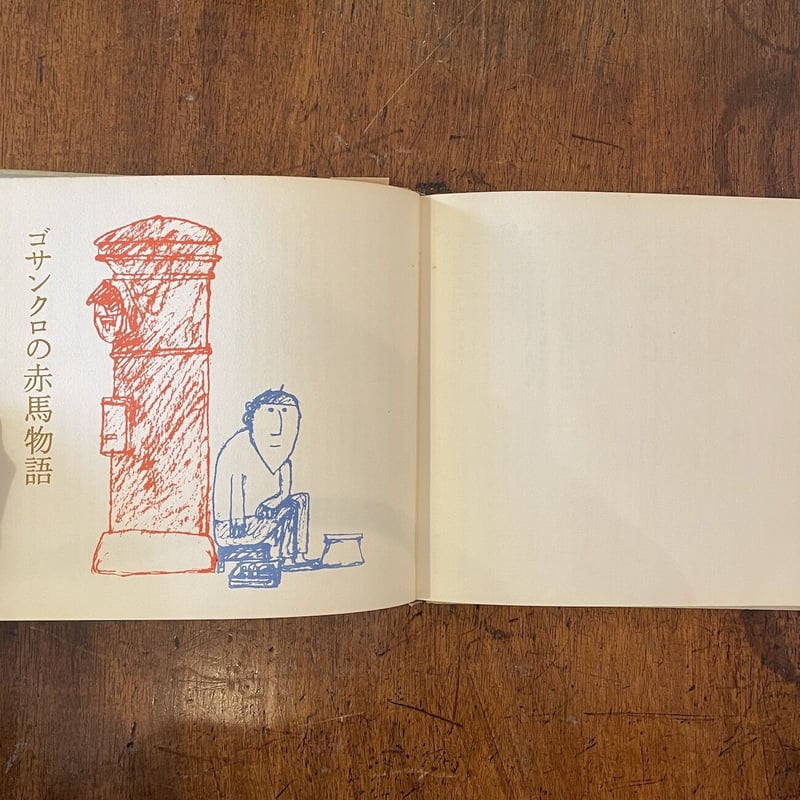 ゴサンクロの赤馬物語